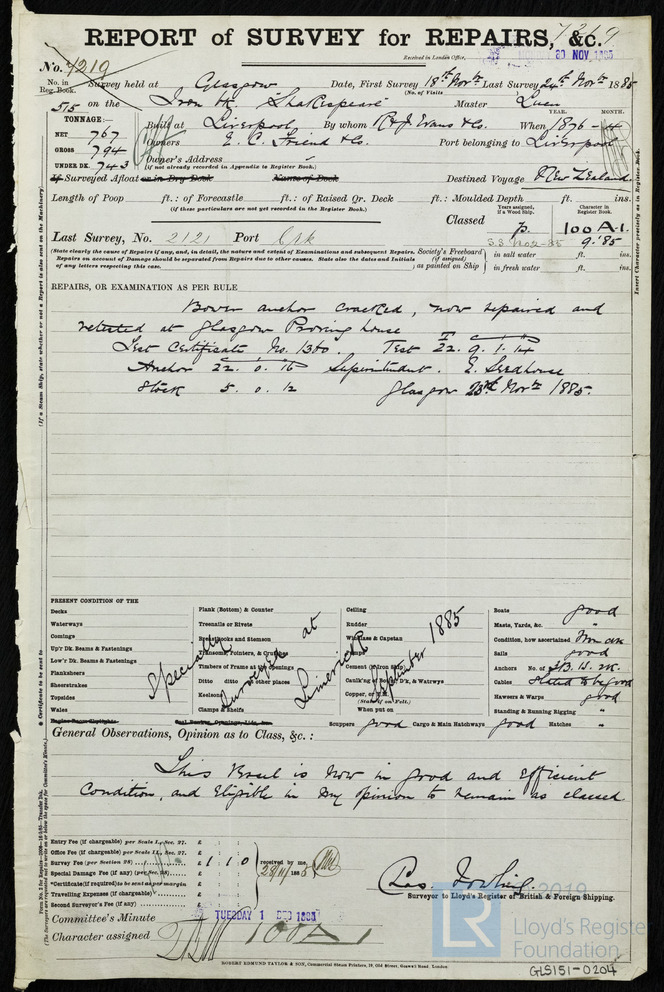 7219
REPORT of SURVEY for REPAIRS, &c.
Received in London Office, 30 NOV 1885
No. 7219
No. in Reg. Book. Survey held at Glasgow Date, First Survey 18th Novr Last Survey 24th Novr 1885
(No. of Visits
515 on the Iron bk. "Shakespeare" Master
TONNAGE:— YEAR. MONTH.
NET 767 Built at Liverpool By whom R & J. Evans & Co. When 1876 -
GROSS 794 Owners E. C. Friend & Co. Port belonging to Liverpool
UNDER DK. 743 Owner's Address
(if not already recorded in Appendix to Register Book.)
If Surveyed Afloat or in Dry Dock Name of Dock Destined Voyage New Zealand
Length of Poop ft.: of Forecastle ft.: of Raised Qr. Deck ft.: Moulded Depth ft. ins.
(if these particulars are not yet recorded in the Register Book.)
Years assigned, if a Wood Ship. Character in Register Book.
Classed 100 A.1.
Last Survey, No. 2121 Port Crk 9.'85
(State clearly the cause of Repairs if any, and, in detail, the nature and extent of Examinations and subsequent Repairs. Society's Freeboard in salt water ft. ins.
Repairs on account of Damage should be separated from Repairs due to other causes. State also the dates and Initials (if assigned)
of any letters respecting this case. as painted on Ship in fresh water ft. ins.
REPAIRS, OR EXAMINATION AS PER RULE
Bower anchor cracked, now repaired and
retested at Glasgow Proving house
Test Certificate No. 1360. Test 22. 9. 1. 14
Anchor 22. 0. 16 Superintendent. E.
Stock 5. 0. 12 Glasgow 23rd Novr 1885.
PRESENT CONDITION OF THE
Decks Plank (Bottom) & Counter Ceiling Boats good
Waterways Treenails or Rivets Rudder Masts, Yards, &c.
Comings Breasthooks and Stemson Windlass & Capstan Condition, how ascertained From dk
Up'r Dk. Beams & Fastenings Transoms, Pointers, & Crutches Pumps Sails good
Low'r Dk. Beams & Fastenings Timbers of Frame at the openings Cement (if Iron Ship) Anchors No. of 3B. 1S. 2K.
Planksheers Ditto ditto to other places Caulk'ng of Body Dk, & Watrwys Cables Stated to be good
Sheerstrakes Keelsons Copper, or Y.M. Hawsers & Warps good
Topsides Clamps & Shelfs (State if on Felt.) Standing & Running Rigging "
Wales When put on
Scuppers good Cargo & Main Hatchways good Hatches "
Specially Surveyed at Limerick September 1885
General Observations, Opinion as to Class, &c.:
This Vessel is now in good and efficient
Condition, and Eligible in my opinion to remain as classed.
Entry Fee (if chargeable) per Scale I., Sec. 27. £
Office Fee (if chargeable) per Scale II., Sec. 27. £
Survey Fee (per Section 28) £ 1 1 0 received by me,
Special Damage Fee (if any) (per Sec. 28) £ 28/11/1885
*Certificate (if required) to be sent as per margin £
Travelling Expenses (if chargeable) £
Second Surveyor's Fee (if any) £
Surveyor to Lloyd's Register of British & Foreign Shipping.
Committee's Minute TUESDAY 1 DEC 1885
Character assigned 100 A 1
ROBERT EDMUND TAYLOR & SON, Commercial Steam Printers, 19, Old Street, Goswell Road, London.
2019
LR Lloyd's Register Foundation
GLS151-0204